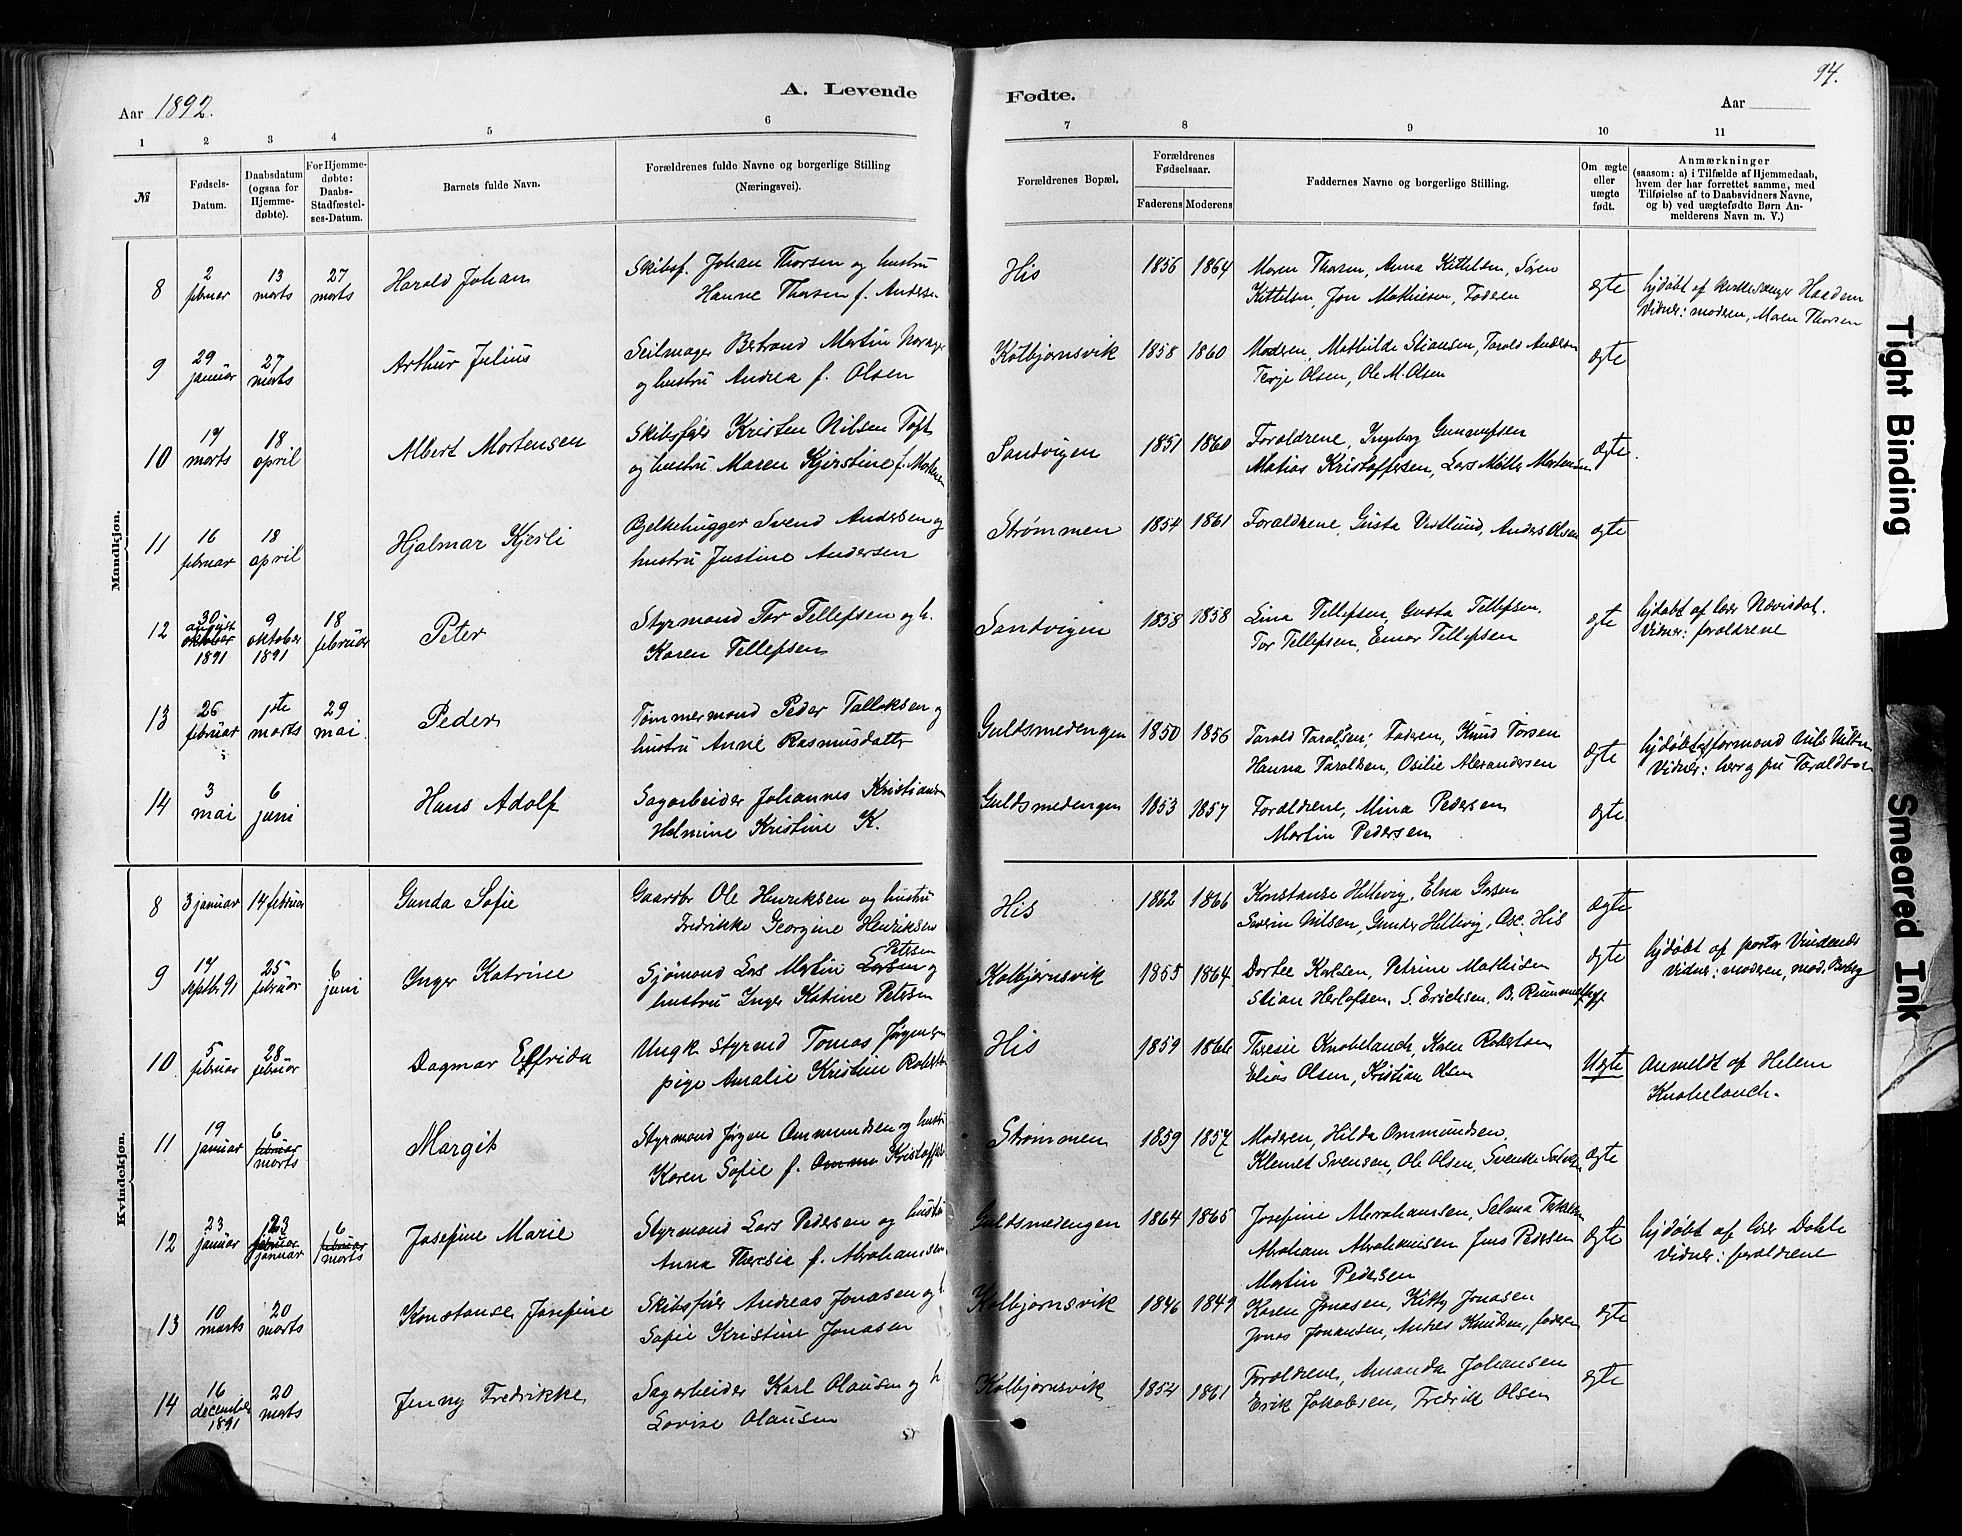 Aar 1892.
A. Levende
Fødte.
94.
Aar
1 2 3 4 5 6 7 8 9 10 11
№
Fødsels-Datum.
Daabsdatum (ogsaa for Hjemme-døbte).
For Hjemme-døbte: Daabs-Stadfæstel-ses-Datum.
Barnets fulde Navn.
Forældrenes fulde Navne og borgerlige Stilling (Næringsvei).
Forældrenes Bopæl.
Forældrenes Fødselsaar.
Faderens Moderens
Faddernes Navne og borgerlige Stilling.
Om ægte eller uægte født.
Anmærkninger
(saasom: a) i Tilfælde af Hjemmedaab, hvem der har forrettet samme, med Tilføielse af to Daabsvidners Navne, og b) ved uægtefødte Børn An-melderens Navn m. V.)
Mandkjøn.
8 2 februar 13 marts 27 marts Harald Johan
Skibsf. Johan Thorsen og hustru
Hanne Thorsen f. Andersen
His 1856 1864
Maren Thorsen, Anna Kittelsen, Søren
Kittelsen, Jon Mathiesen, Faderen
ægte
hjdøbt af kirkesanger Haadem
Vidner: moderen, Maren Thorsen
9 29 januar 27 marts Arthur Julius
Seilmager Bertrand Martin
og hustru Andrea f. Olsen
Kolbjørnsvik 1858 1860
Moderen, Mathilde Stiansen, Tarald Andersen
Terje Olsen, Ole M. Olsen
ægte
10 17 marts 18 april Albert Mortensen
Skibsfører Kristen Nilsen Toft
og hustru Maren Kjerstine f. Mortensen
Sandvigen 1851 1860
Forældrene, Ingeborg Gunnufsen
Matias Kristoffersen, Lars Møller Mortensen
ægte.
11 16 februar 18 april Hjalmar Kjerli
Bjelkehugger Svend Andersen og
hustru Justine Andersen
Strømmen 1854 1861
Forældrene, Gusta Vestlund, Anders Olsen
ægte
12 30 august oktober 1891 9 oktober 1891 18 februar Peter
Styrmand Tor Tellefsen og h.
Karen Tellefsen
Sandvigen 1858 1858
Lina Tellefsen, Gusta Tellefsen,
Tor Tellefsen, Einar Tellefsen
ægte
hjdøbt af lærer Navisdal.
Vidner: forældrene
13 26 februar 1ste marts 29 mai. Peder
Tømmermand Peder Tallaksen og
hustru Anne Rasmusdatter
Guldsmedengen 1850 1856
Tarald Taralsen, Faderen, Knud Torsen
Hanna Taraldsen, Osilie Alexandersen
ægte
hjdøbt af formand Nils
Vidner: herr og fru Taraldsen
14 3 mai 6 juni Hans Adolf
Sagarbeider Johannes Kristiansen
Helmine Kristine K.
Guldsmedengen 1853 1857
Forældrene, Mina Pedersen
Martin Pedersen
ægte
Kvindekjøn.
8 3 januar 14 februar Gunda Sofie
Gaardbr Ole Henriksen og hustru
Fredrikke Georgine Henriksen
His 1862 1866
Konstanse Hellevig, Elna
Severin Nilsen, Gunder Hellevig, Osc. His
ægte
9 17 septbr. 91 25 februar 6 juni Inger Katrine
Sjømand Lars Martin Larsen Petersen og
hustru Inger Katrine Petersen
Kolbjørnsvik 1855 1864
Dortee Karlsen, Petrine Mathisen
Stian Herlofsen, S. Erichsen, B. Rummelhoff
ægte
hjdøbt af pastor Vindenæs
Vidner: moderen, mad. Boberg
10 5 februar 28 februar Dagmar Elfrida
Ungk. styrmd Tomas Jørgensen
pige Amalie Kristine Robertsen
His 1859 1866
Theresie Knobelauch, Karen Robertsen
Elias Olsen, Kristian Olsen
Uægte
Anmeldt af Helem
Knobelauch.
11 19 januar 6 februar marts Margit
Styrmand Jørgen Ommundsen og hustru
Karen Sofie f. Ommu Kristoffersen
Strømmen 1859 1857
Moderen, Hilda Ommundsen,
Klemet Svensen, Ole Olsen, Svenke
ægte
12 23 januar 23 februar januar 6 februar marts Josefine Marie
Styrmand Lars Pedersen og hustru
Anna Theresia f. Abrahamsen
Guldsmedengen 1864 1865
Josefine Abrahamsen, Selma
Abraham Abrahamsen, Jens Pedersen
Martin Pedersen
ægte
hjdøbt af lærer Dahle
Vidner: forældrene
13 10 marts 20 marts Konstanse Josefine
Skibsfører Andreas Jonasen og h
Sofie Kristine Jonasen
Kolbjørnsvik 1846 1849
Karen Jonasen, Kitty Jonasen
Jonas Jonasen, Andres Knudsen, faderen
ægte
14 16 december 1891 20 marts Jenny Fredrikke
Sagarbeider Karl Olausen og h
Lovise Olausen
Kolbjørnsvik 1854 1861
Forældrene, Amanda Johansen
Erik Jakobsen, Fredrik Olsen
ægte
Tight Binding
Smeared Ink